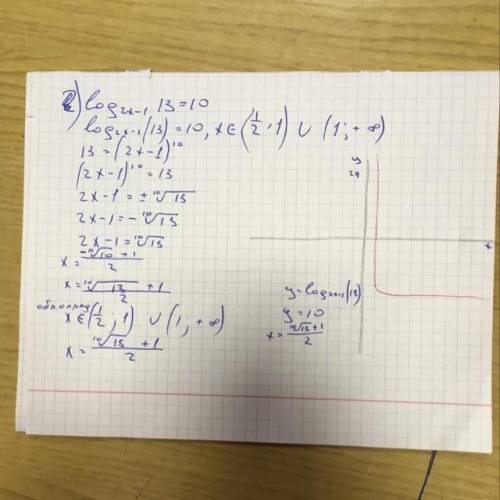 2) log₂ₓ₋₁ 13 = 10
log₂ₓ₋₁(13) = 10, x ∈ (1/2; 1) ∪ (1; +∞)
13 = (2x-1)¹⁰
(2x-1)¹⁰ = 13
2x-1 = ± ¹⁰√13
2x-1 = - ¹⁰√13
2x-1 = ¹⁰√13
x = (-¹⁰√10 + 1)/2
x = (¹⁰√13 + 1)/2
x ∈ (1/2; 1) ∪ (1; +∞)
x = (¹⁰√13 + 1)/2
y
x
y = log₂ₓ₋₁(13)
y = 10
x = (¹⁰√13 + 1)/2